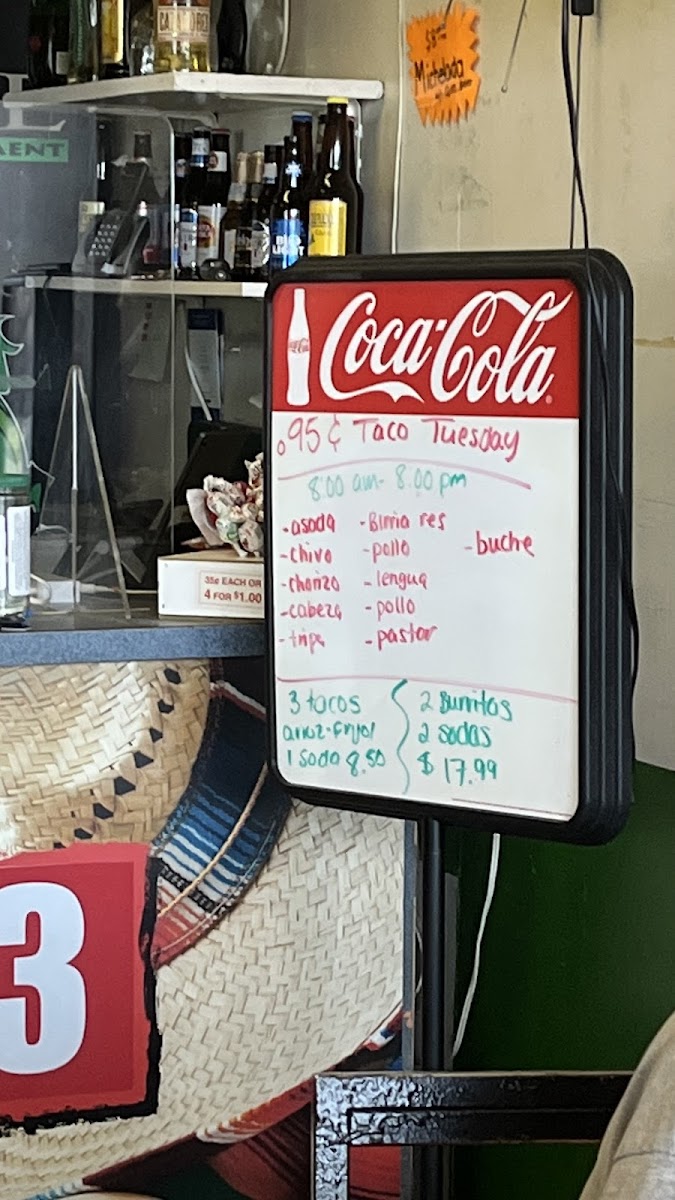 $8.00
Michelada
AENT
BUD
LIGHT
Coca-Cola
Coca-Cola
.95¢ Taco Tuesday
8:00 am - 8:00 pm
-asada
-chivo
-chorizo
-cabeza
-tripa
-Birria res
-pollo
-lengua
-pollo
-pastor
-buche
35¢ EACH OR
4 FOR $1.00
3 tacos
arroz-frijol
1 Soda 8.50
2 Burritos
2 sodas
$ 17.99
3